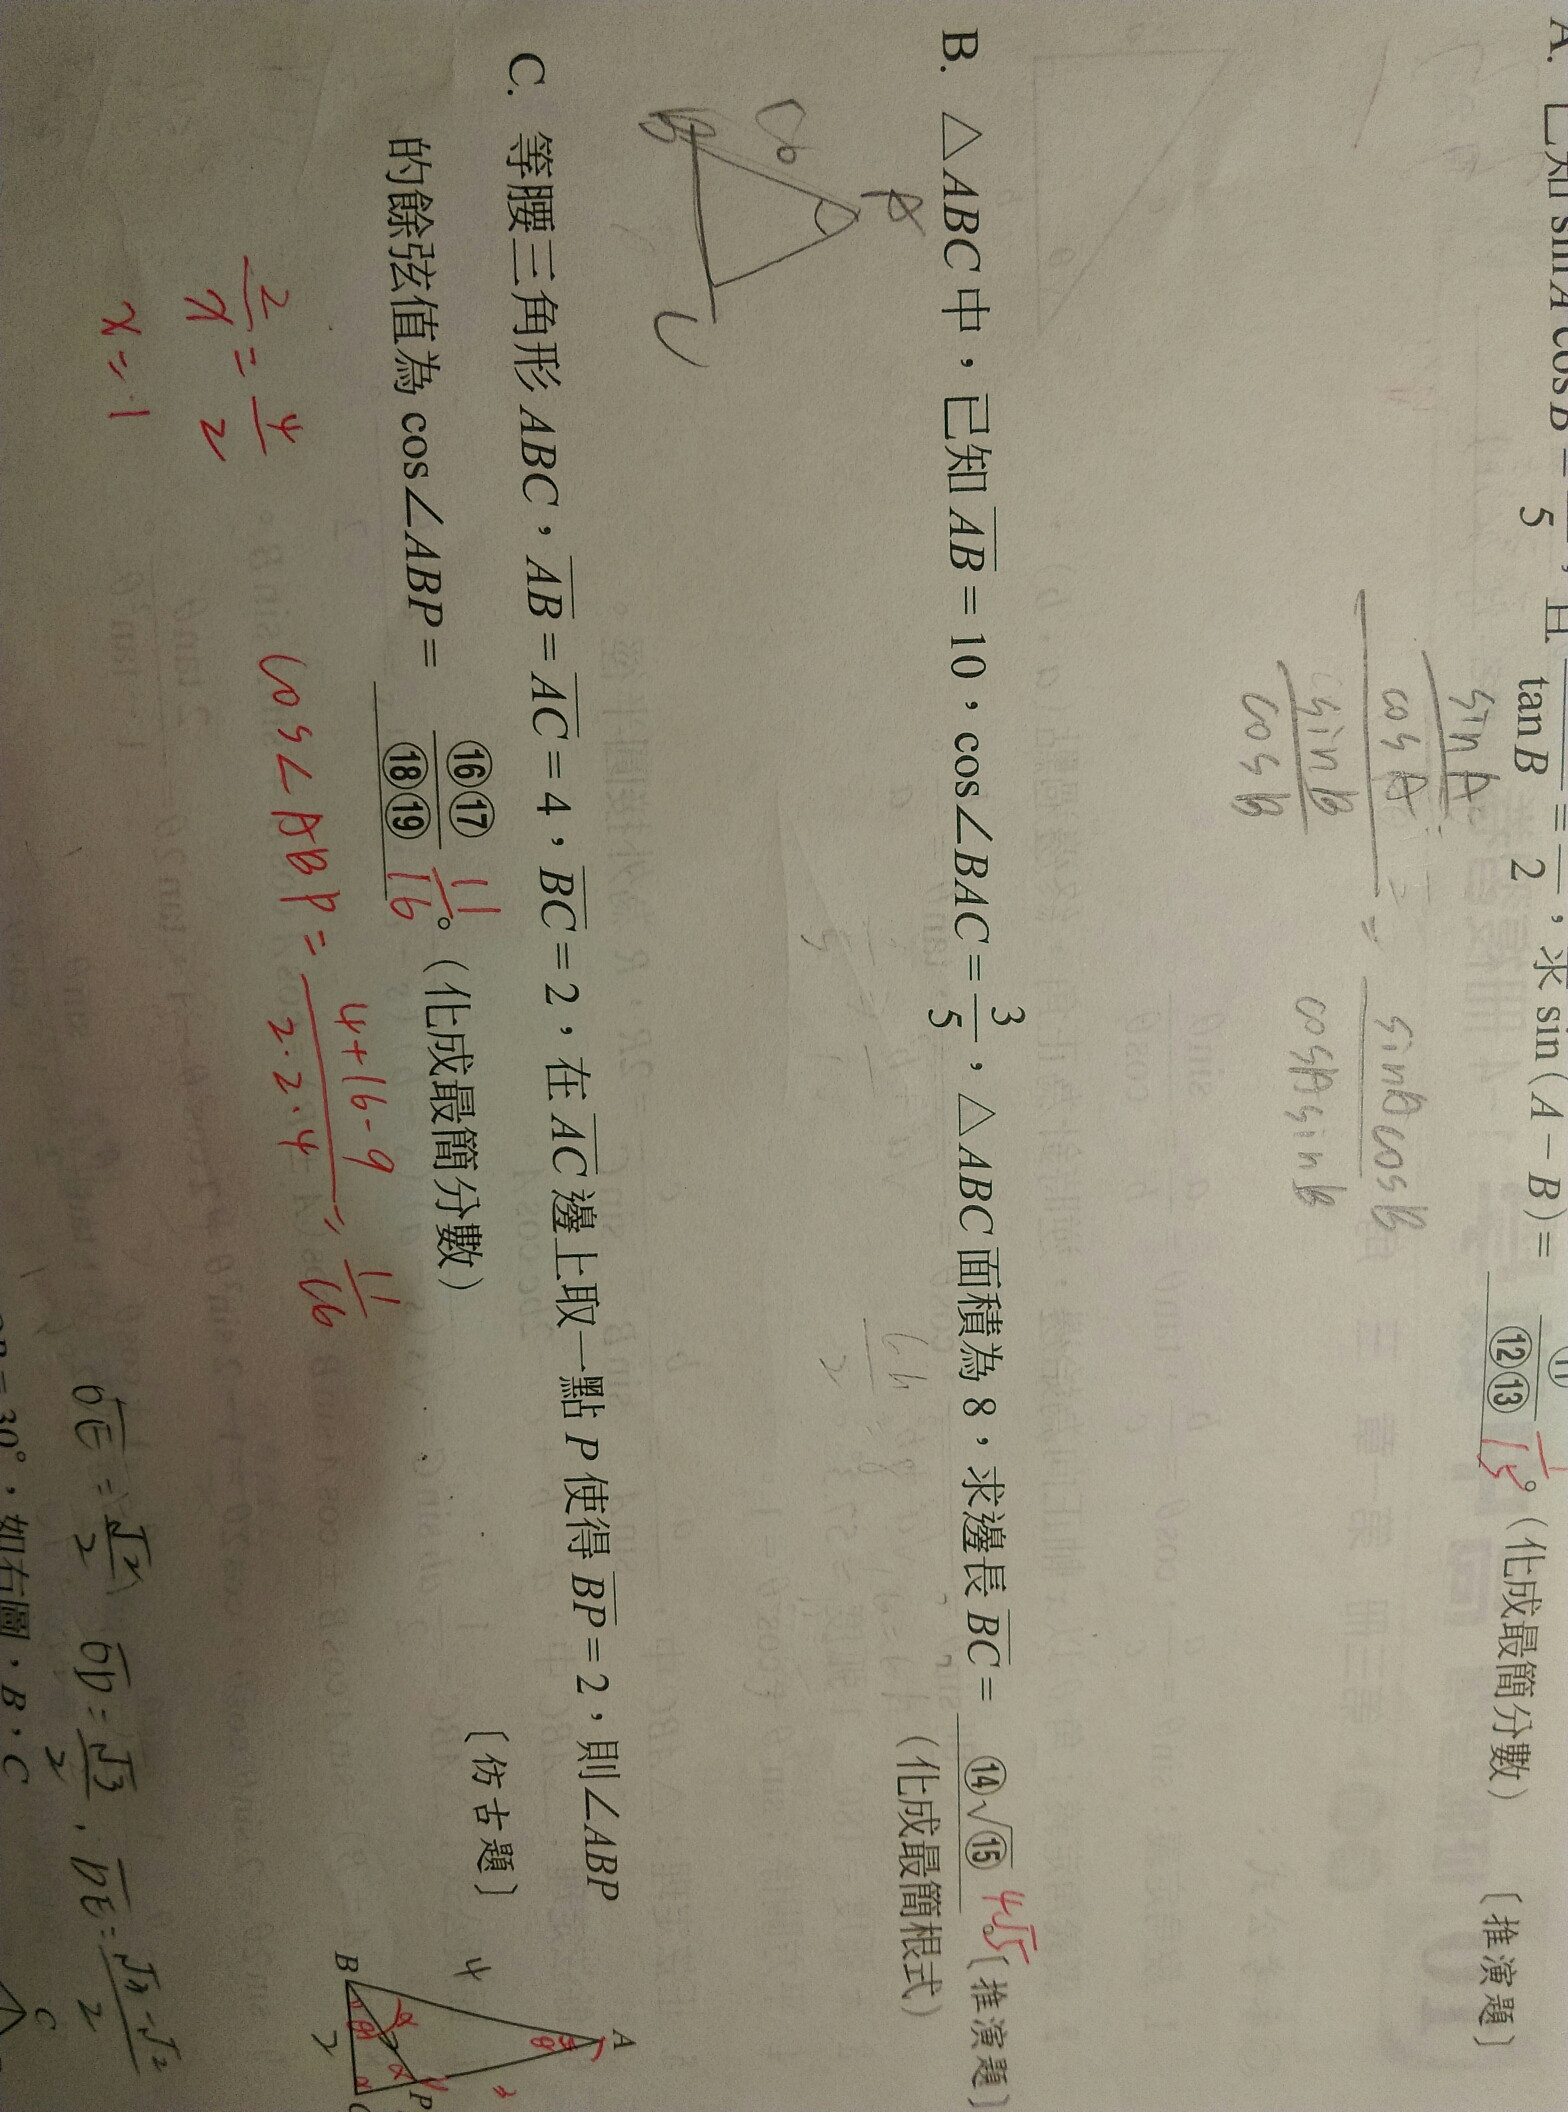 A. 已知 sin A cos B = 5, 且 tan B = 2, 求 sin(A − B) = ⑪/⑫⑬ 1/15。(化成最簡分數) 〔推演題〕
sinA/cosA / sinB/cosB = sinAcosB/cosAsinB
B. △ABC 中，已知 AB = 10，cos∠BAC = 3/5，△ABC 面積為 8，求邊長 BC = ⑭√⑮ 4√5。〔推演題〕
(化成最簡根式)
A
B
C
C. 等腰三角形 ABC，AB = AC = 4，BC = 2，在 AC 邊上取一點 P 使得 BP = 2，則∠ABP
的餘弦值為 cos∠ABP = ⑯⑰/⑱⑲ 11/16。(化成最簡分數) 〔仿古題〕
2/x = 4/2
x = 1
cos∠ABP = 4+16-9/2·2·4 = 11/16
A
4
B
P
2
= 30°，如右圖，B，C
C